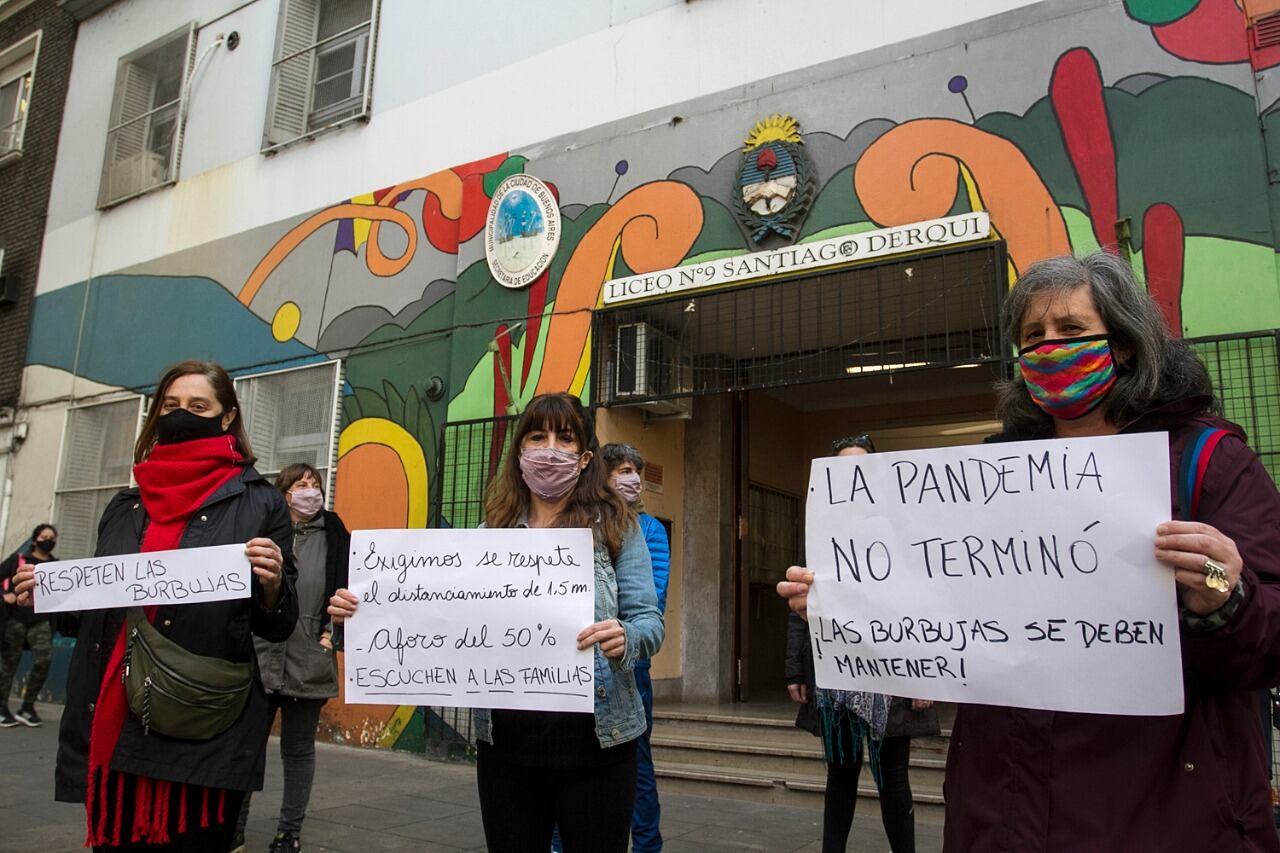 MUNICIPALIDAD DE LA CIUDAD DE BUENOS AIRES
SECRETARIA DE EDUCACION
LICEO Nº9 SANTIAGO DERQUI
RESPETEN LAS
BURBUJAS
· Exigimos se respete
el distanciamiento de 1,5 m.
- Aforo del 50%
· ESCUCHEN A LAS FAMILIAS
· LA PANDEMIA
NO TERMINÓ
¡LAS BURBUJAS SE DEBEN
MANTENER!